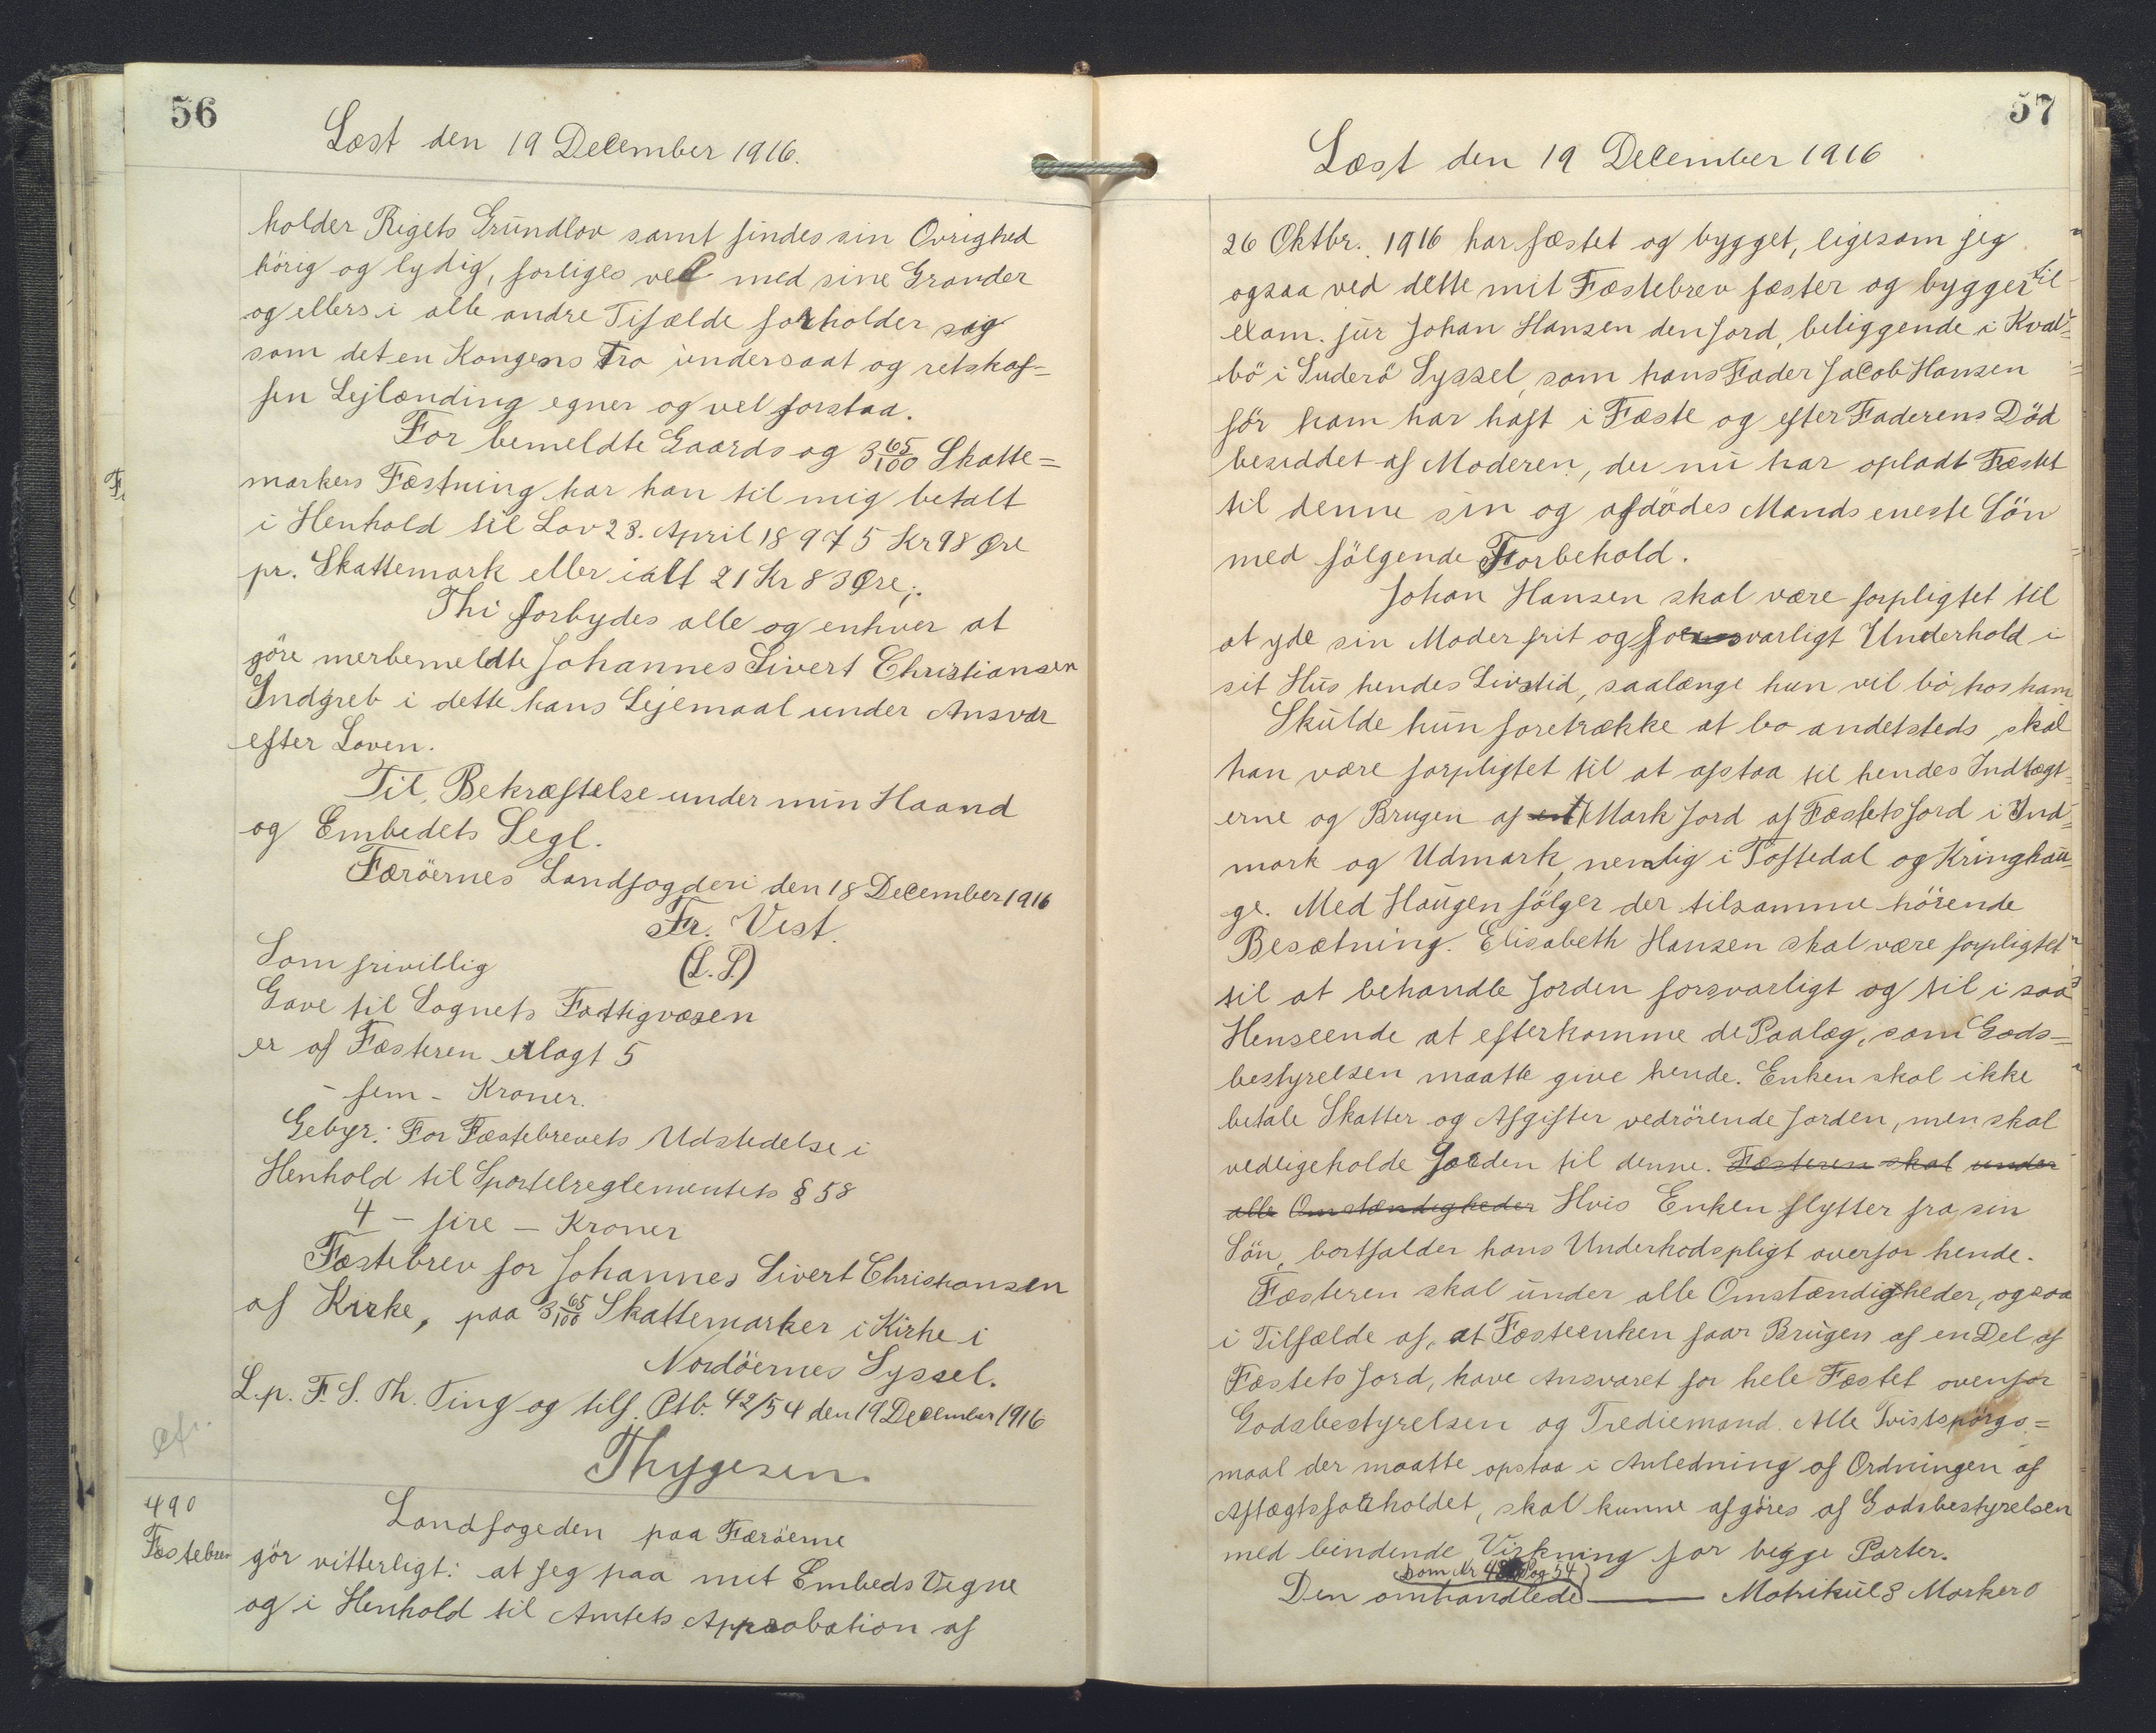 56
Læst den 19 December 1916.
holder Rigets Grundlov samt findes sin Øvrighed
hörig og lydig, forliges vel med sine Grander
og ellers i alle andre Tifælde forholder sig
som det en Kongens Tro undersaat og retskaf=
fen Lejlænding egner og vel forstaa.
For bemeldte Gaards og 3 65/100 Skatte=
markers Fæstning har han til mig betalt
i Henhold til Lov 23. April 1897 5 Kr 98 Øre
pr. Skattemark eller ialt 21 Kr 83 Øre;.
Thi forbydes alle og enhver at
göre merbemeldte Johannes Sivert Christiansen
Indgreb i dette hans Lejemaal under Ansvar
efter Loven.
Til Bekræftelse under min Haand
og Embedets Segl.
Færöernes Landfogderi den 18 December 1916
Fr. Vest.
(L.S.)
Som frivillig
Gave til Sognets Fattigvæsen
er af Fæsteren erlagt 5
- fem - Kroner.
Gebyr: For Fæstebrevets Udstedelse i
Henhold til Sportelreglementets § 58
4 - fire - Kroner
Fæstebrev for Johannes Sivert Christiansen
af Kirke, paa 3 65/100 Skattemarker i Kirke i
Nordöernes Syssel.
L. p. F. S. Th. Ting og tilf. Ptb. 42/54 den 19 December 1916
cfr.
Thygesen.
490
Fæstebrev
Landfogeden paa Færöerne
gör vitterligt: at jeg paa mit Embeds Vegne
og i Henhold til Amtets Approbation af
57
Læst den 19 December 1916
26 Oktbr. 1916 har fæstet og bygget, ligesom jeg
ogsaa ved dette mit Fæstebrev fæster og bygger til
exam. jur Johan Hansen den Jord, beliggende i Kval=
bö i Suderö Syssel, som hans Fader Jacob Hansen
för ham har haft i Fæste og efter Faderens Död
besiddet af Moderen, der nu har opladt Fæstet
til denne sin og afdödes Mands eneste Sön
med fölgende Forbehold.
Johan Hansen skal være forpligtet til
at yde sin Moder frit og forsvarligt Underhold i
sit Hus hendes Livstid, saalænge hun vil bo hos ham
Skulde hun foretrække at bo andetsteds, skal
han være forpligtet til at afstaa til hendes Indtægt=
erne og Brugen af 1 Mark Jord af Fæstets Jord i Ind=
mark og Udmark, nemlig i Toftedal og Kringhau=
ge. Med Haugen fölger der tilsamme hörende
Besætning. Elisabeth Hansen skal være forpligtet
til at behandle Jorden forsvarligt og til i saa
Henseende at efterkomme de Paalæg, som Gods=
bestyrelsen maatte give hende. Enken skal ikke
betale Skatter og Afgifter vedrörende Jorden, men skal
vedligeholde Gærden til denne. Fæsteren skal under
alle Omstændigheder Hvis Enken flytter fra sin
Sön, bortfalder hans Underhodspligt overfor hende.
Fæsteren skal under alle Omstændigheder, ogsaa
i Tilfælde af, at Fæsteenken faar Brugen af en Del af
Fæstets Jord, have Ansvaret for hele Fæstet ovenfor
Godsbestyrelsen og Trediemand. Alle Tvistspörgs=
maal der maatte opstaa i Anledning af Ordningen af
Aftægtsforholdet, skal kunne afgöres af Godsbestyrelsen
med bindende Virkning for begge Parter.
som Nr Pag 54
Den omhandlede ——— Matrikul 8 Marker 0